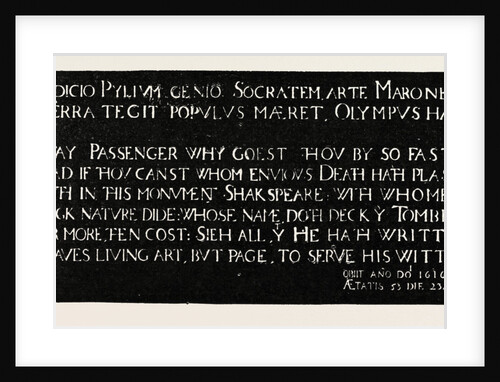 DICIO PYLIVM GENIO SOCRATEM, ARTE MARONE
ERRA TEGIT POPVLVS MÆRET, OLYMPVS HA
AY PASSENGER WHY GOEST THOV BY SO FAST
AD IF THOV CANST WHOM ENVIOVS DEATH HATH PLAS
TH IN THIS MONVMENT SHAKSPEARE: WITH WHOME
CK NATVRE DIDE: WHOSE NAME, DOTH DECK Y TOMBE
R MORE, TEN COST: SIEH ALL, Y HE HATH WRITT
AVES LIVING ART, BVT PAGE, TO SERVE HIS WITT
OBIIT AÑO DO 1616
ÆTATIS 53 DIE 23